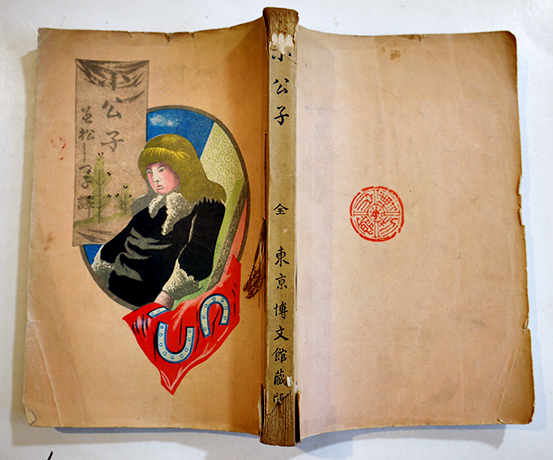 小公子
若松しづ子譯
小公子
全
東京博文館蔵版